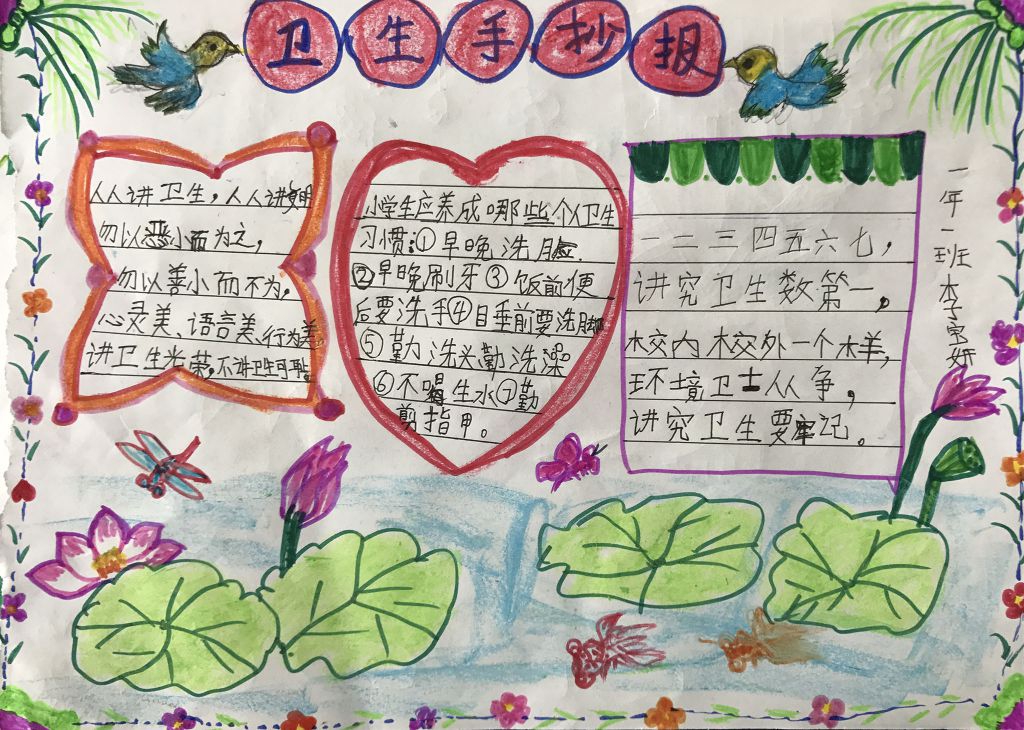 卫生手抄报
人人讲卫生，人人讲文明
勿以恶小而为之，
勿以善小而不为，
心灵美、语言美、行为美
讲卫生光荣，不讲卫生可耻
小学生应养成哪些个人卫生
习惯：①早晚洗脸.
②早晚刷牙③饭前便
后要洗手④目垂前要洗脚
⑤勤洗头勤洗澡
⑥不喝生水⑦勤
剪指甲。
一二三四五六七，
讲究卫生数第一，
校内校外一个样，
环境卫士人人争，
讲究卫生要牢记。
一年一班 李宝妍